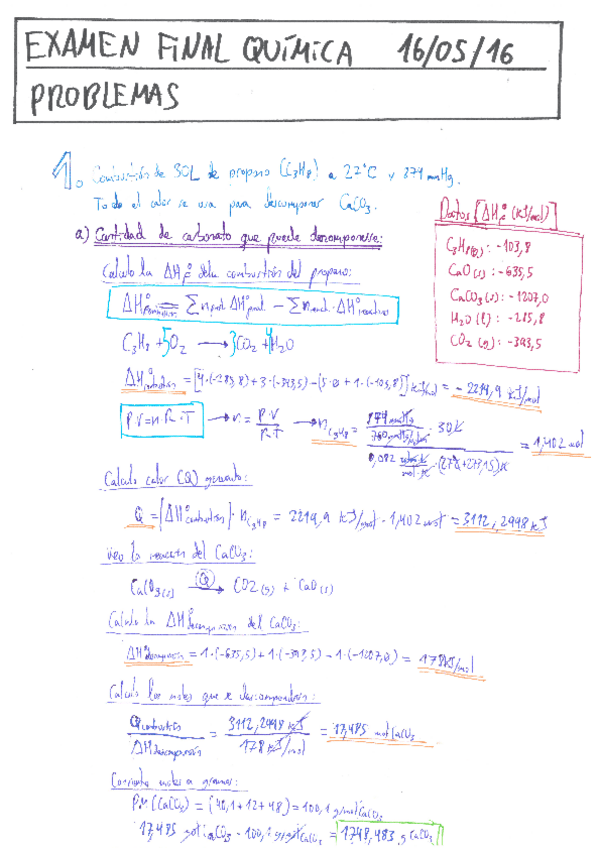 EXAMEN FINAL QUÍMICA 16/05/16
PROBLEMAS
1. Combustión de 30L de propano (C₃H₈) a 27°C y 874 mmHg.
Todo el calor se usa para descomponer CaCO₃.
a) Cantidad de carbonato que puede descomponerse:
Datos [ΔH°f (KJ/mol)]
C₃H₈(g): -103,8
CaO(s): -635,5
CaCO₃(s): -1207,0
H₂O(l): -285,8
CO₂(g): -393,5
Calculo la ΔH°c de la combustión del propano:
ΔH° = Σ nprod. ΔH°prod. - Σ nreact. · ΔH°reactivos
C₃H₈ + 5O₂ → 3CO₂ + 4H₂O
ΔH°combustión = [4·(-285,8) + 3·(-393,5) - (5·0 + 1·(-103,8))] KJ/mol = -2219,9 KJ/mol
P·V = n·R·T → n = P·V / R·T → n C₃H₈ = (874 mmHg / 760 mmHg/atm · 30L) / (0,082 atm·L / mol·K · (27+273,15)K) = 1,402 mol
Calculo calor (Q) generado:
Q = |ΔH°combustión| · n C₃H₈ = 2219,9 KJ/mol · 1,402 mol = 3112,2998 KJ
Veo la reacción del CaCO₃:
CaCO₃(s) (Q) → CO₂(g) + CaO(s)
Calculo la ΔH°descomposición del CaCO₃:
ΔH°descomposición = 1·(-635,5) + 1·(-393,5) - 1·(-1207,0) = 178 KJ/mol
Calculo los moles que se descompondrán:
Qcombustión / ΔHdescomposición = 3112,2998 KJ / 178 KJ/mol = 17,485 mol CaCO₃
Convierto moles a gramos:
PM (CaCO₃) = (40,1 + 12 + 48) = 100,1 g/mol CaCO₃
17,485 mol CaCO₃ · 100,1 g/mol CaCO₃ = 1748,483 g CaCO₃